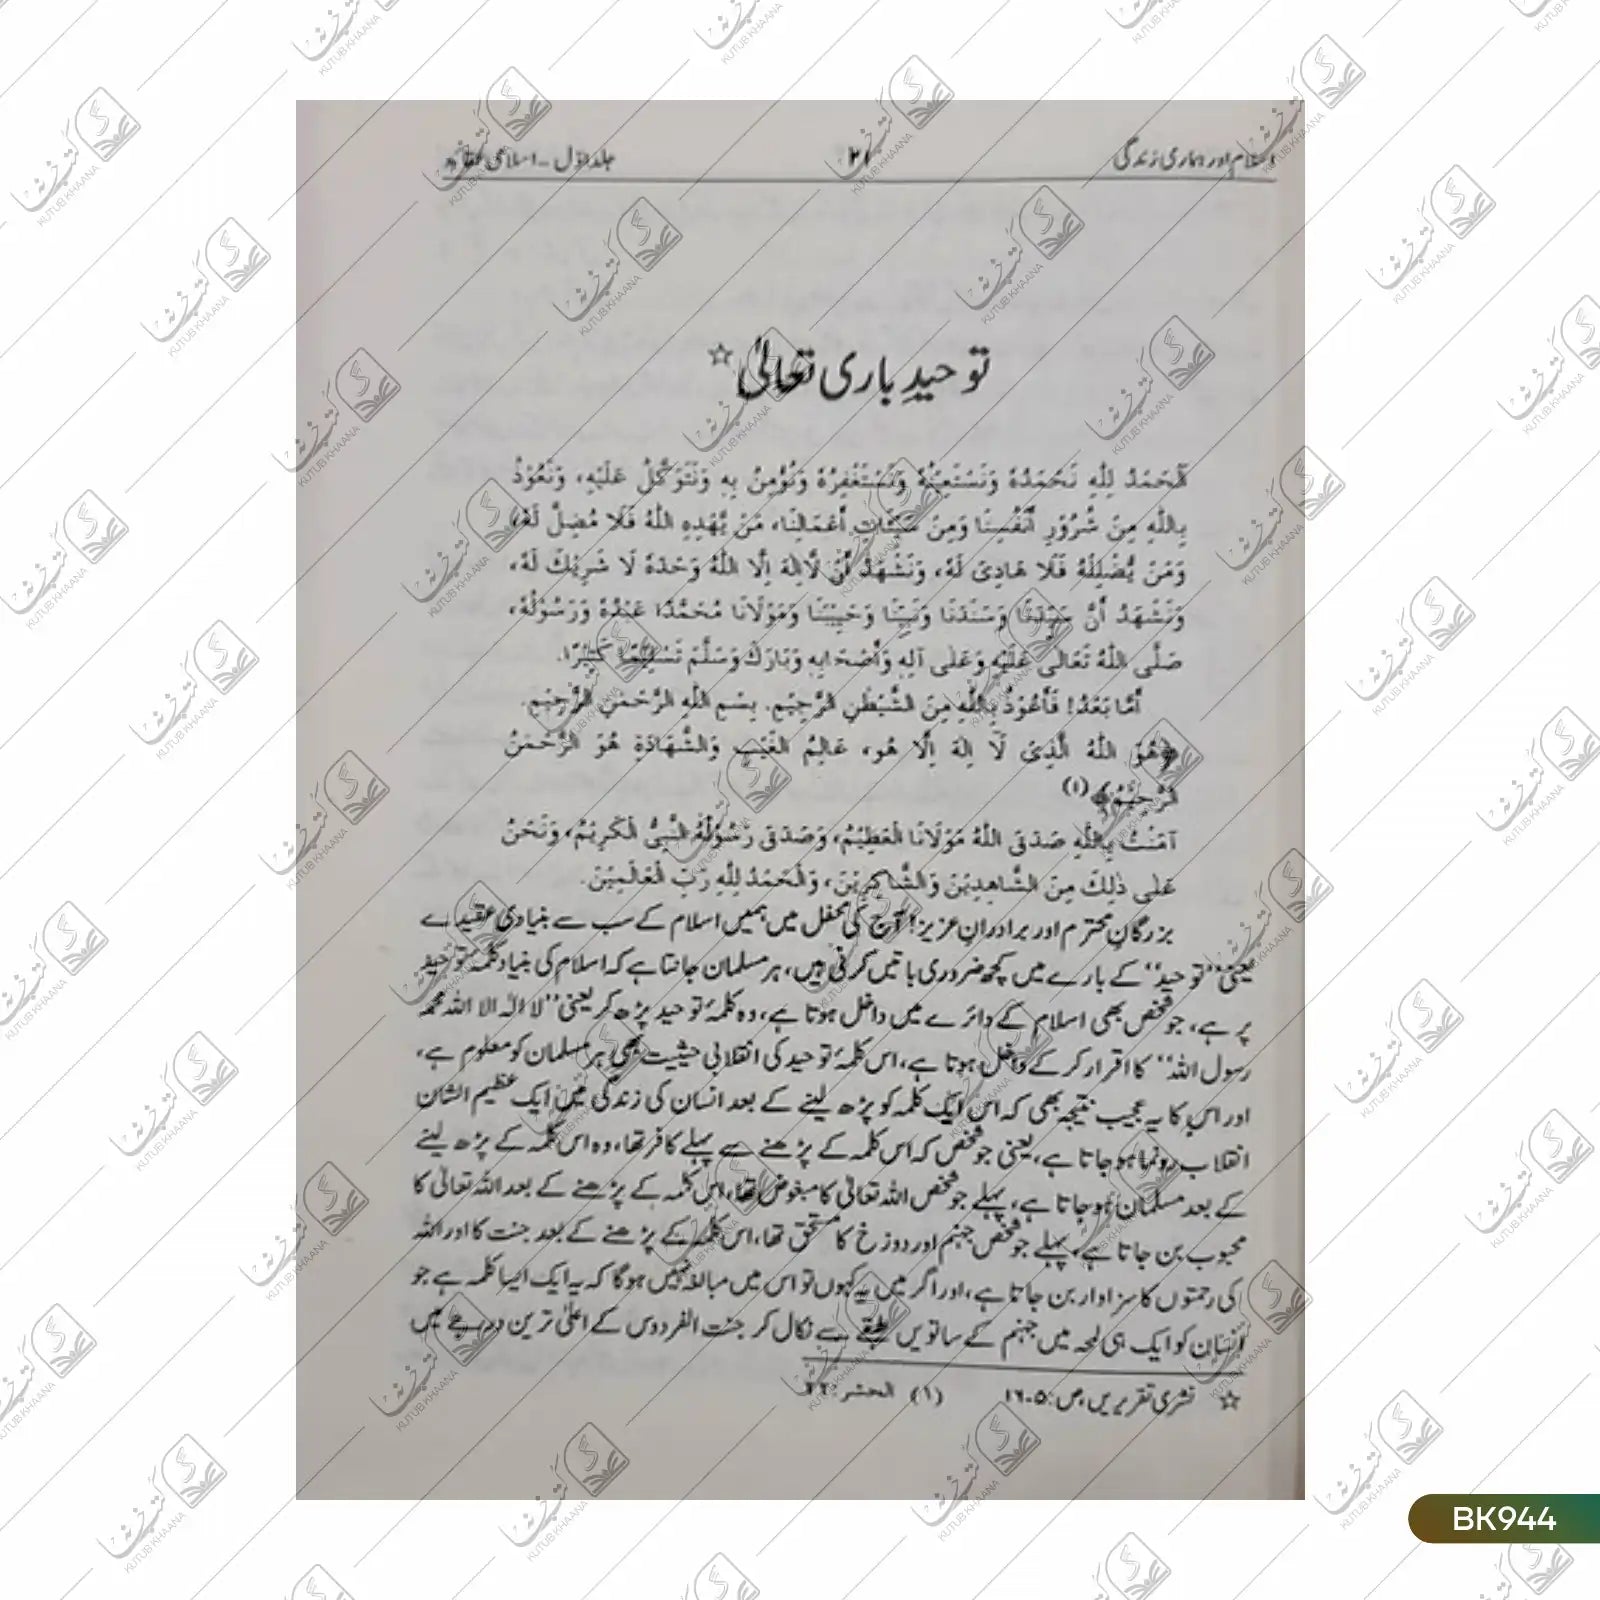 اسلام اور ہماری زندگی
۲۱
جلد اوّل - اسلامی عقائد
توحیدِ باری تعالیٰ ☆
اَلْحَمْدُ لِلّٰهِ نَحْمَدُهٗ وَنَسْتَعِيْنُهٗ وَنَسْتَغْفِرُهٗ وَنُؤْمِنُ بِهٖ وَنَتَوَكَّلُ عَلَيْهِ، وَنَعُوْذُ
بِاللّٰهِ مِنْ شُرُوْرِ أَنْفُسِنَا وَمِنْ سَيِّئَاتِ أَعْمَالِنَا، مَنْ يَّهْدِهِ اللّٰهُ فَلَا مُضِلَّ لَهٗ
وَمَنْ يُّضْلِلْهُ فَلَا هَادِىَ لَهٗ، وَنَشْهَدُ أَنْ لَّاإِلٰهَ اِلَّا اللّٰهُ وَحْدَهٗ لَا شَرِيْكَ لَهٗ،
وَنَشْهَدُ أَنَّ سَيِّدَنَا وَسَنَدَنَا وَنَبِيَّنَا وَحَبِيْبَنَا وَمَوْلَانَا مُحَمَّدًا عَبْدُهٗ وَرَسُوْلُهٗ،
صَلَّى اللّٰهُ تَعَالٰى عَلَيْهِ وَعَلٰى آلِهٖ وَأَصْحَابِهٖ وَبَارَكَ وَسَلَّمَ تَسْلِيْمًا كَثِيْرًا.
أَمَّا بَعْدُ! فَأَعُوْذُ بِاللّٰهِ مِنَ الشَّيْطٰنِ الرَّجِيْمِ. بِسْمِ اللّٰهِ الرَّحْمٰنِ الرَّحِيْمِ.
﴿هُوَ اللّٰهُ الَّذِىْ لَآ اِلٰهَ اِلَّا هُوَ، عَالِمُ الْغَيْبِ وَالشَّهَادَةِ هُوَ الرَّحْمٰنُ
الرَّحِيْمُ﴾(۱)
آمَنْتُ بِاللّٰهِ صَدَقَ اللّٰهُ مَوْلَانَا الْعَظِيْمُ، وَصَدَقَ رَسُوْلُهُ النَّبِىُّ الْكَرِيْمُ، وَنَحْنُ
عَلٰى ذٰلِكَ مِنَ الشَّاهِدِيْنَ وَالشَّاكِرِيْنَ، وَالْحَمْدُ لِلّٰهِ رَبِّ الْعَالَمِيْنَ.
بزرگانِ محترم اور برادرانِ عزیز! آج کی محفل میں ہمیں اسلام کے سب سے بنیادی عقیدے
یعنی ’’توحید‘‘ کے بارے میں کچھ ضروری باتیں کرنی ہیں، ہر مسلمان جانتا ہے کہ اسلام کی بنیاد کلمۂ توحید
پر ہے، جو شخص بھی اسلام کے دائرے میں داخل ہوتا ہے، وہ کلمۂ توحید پڑھ کر یعنی ’’لا الٰہ الا اللہ محمد
رسول اللہ‘‘ کا اقرار کر کے داخل ہوتا ہے، اس کلمۂ توحید کی انقلابی حیثیت بھی ہر مسلمان کو معلوم ہے،
اور اس کا یہ عجیب نتیجہ بھی کہ اس ایک کلمہ کو پڑھ لینے کے بعد انسان کی زندگی میں ایک عظیم الشان
انقلاب رونما ہو جاتا ہے، یعنی جو شخص کہ اس کلمہ کے پڑھنے سے پہلے کافر تھا، وہ اس کلمہ کے پڑھ لینے
کے بعد مسلمان ہو جاتا ہے، پہلے جو شخص اللہ تعالیٰ کا مبغوض تھا، اس کلمہ کے پڑھنے کے بعد اللہ تعالیٰ کا
محبوب بن جاتا ہے، پہلے جو شخص جہنم اور دوزخ کا مستحق تھا، اس کلمہ کے پڑھنے کے بعد جنت کا اور اللہ
کی رحمتوں کا سزاوار بن جاتا ہے، اور اگر میں یہ کہوں تو اس میں مبالغہ نہیں ہوگا کہ یہ ایک ایسا کلمہ ہے جو
انسان کو ایک ہی لمحہ میں جہنم کے ساتویں طبقے سے نکال کر جنت الفردوس کے اعلیٰ ترین درجے میں
☆ نشری تقریریں، ص: ۵۔۱۶ (۱) الحشر: ۲۲
BK944
کتب خانہ
KUTUB KHAANA